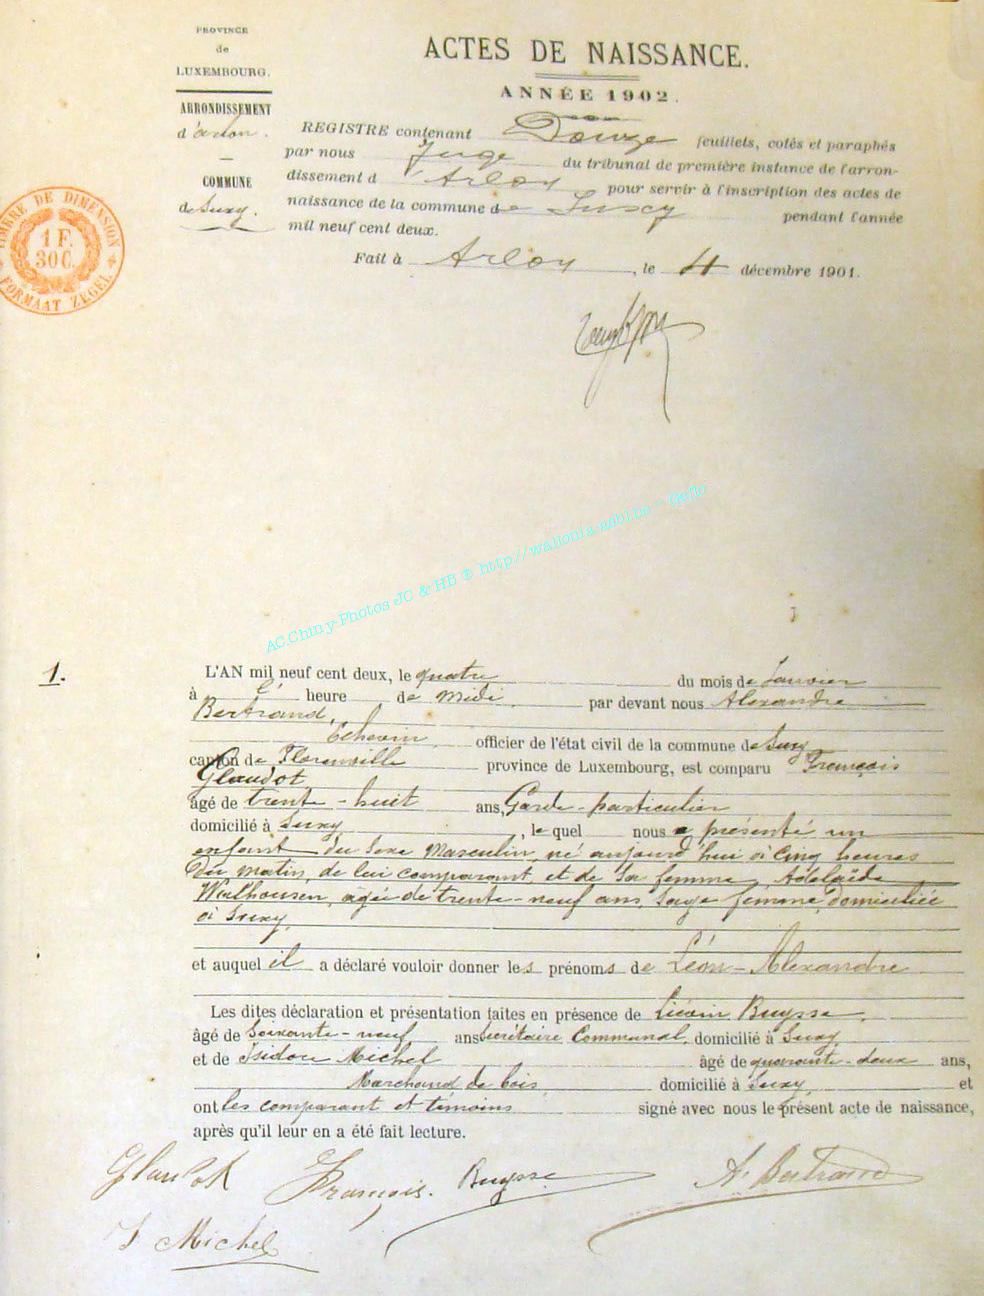 PROVINCE
de
LUXEMBOURG.
ARRONDISSEMENT
d'arlon.
COMMUNE
de Suxy.
TIMBRE DE DIMENSION
1 F.
30 C.
FORMAAT ZEGEL
ACTES DE NAISSANCE.
ANNÉE 1902.
REGISTRE contenant Douze feuillets, cotés et paraphés
par nous Juge du tribunal de première instance de l'arron-
dissement d'Arlon pour servir à l'inscription des actes de
naissance de la commune de Suxy pendant l'année
mil neuf cent deux.
Fait à Arlon, le 4 décembre 1901.
AC.Chiny-Photos JC & HB ® http://wallonia-asbl.be - Geife
1.
L'AN mil neuf cent deux, le quatre du mois de Janvier
à heure de midi par devant nous Alexandre
Bertrand,
Echevin officier de l'état civil de la commune de Suxy
canton de Florenville province de Luxembourg, est comparu François
Glaudot
âgé de trente-huit ans, Garde-particulier
domicilié à Suxy, le quel nous a présenté un
enfant du sexe Masculin, né aujourd'hui à cinq heures
du matin, de lui comparant et de sa femme, Adelaïde
âgée de trente-neuf ans, Sage femme, domiciliée
à Suxy,
et auquel il a déclaré vouloir donner les prénoms de Léon-Alexandre
Les dites déclaration et présentation faites en présence de Buysse,
âgé de Soixante-neuf ans Secrétaire Communal, domicilié à Suxy
et de Isidore Michel âgé de quarante-deux ans,
Marchand de bois domicilié à Suxy, et
ont les comparant et témoins signé avec nous le présent acte de naissance,
après qu'il leur en a été fait lecture.
Glaudot François. Buysse A. Bertrand
J Michel